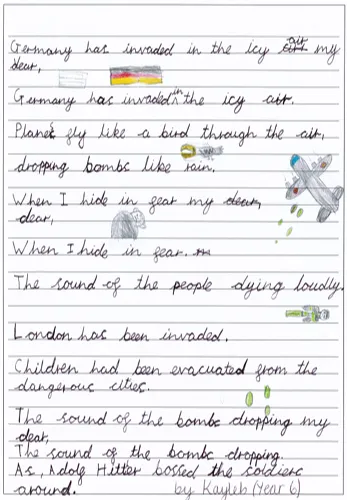 Germany has invaded in the icy air my
dear,
Germany has invaded in the icy air.
Planes fly like a bird through the air,
dropping bombs like rain.
When I hide in fear my
dear,
When I hide in fear.
The sound of the people dying loudly.
London has been invaded.
Children had been evacuated from the
dangerous cities.
The sound of the bombs dropping my
dear,
The sound of the bombs dropping.
As, Adolf Hitler bossed the soldiers
around. by Kayleb (Year 6)